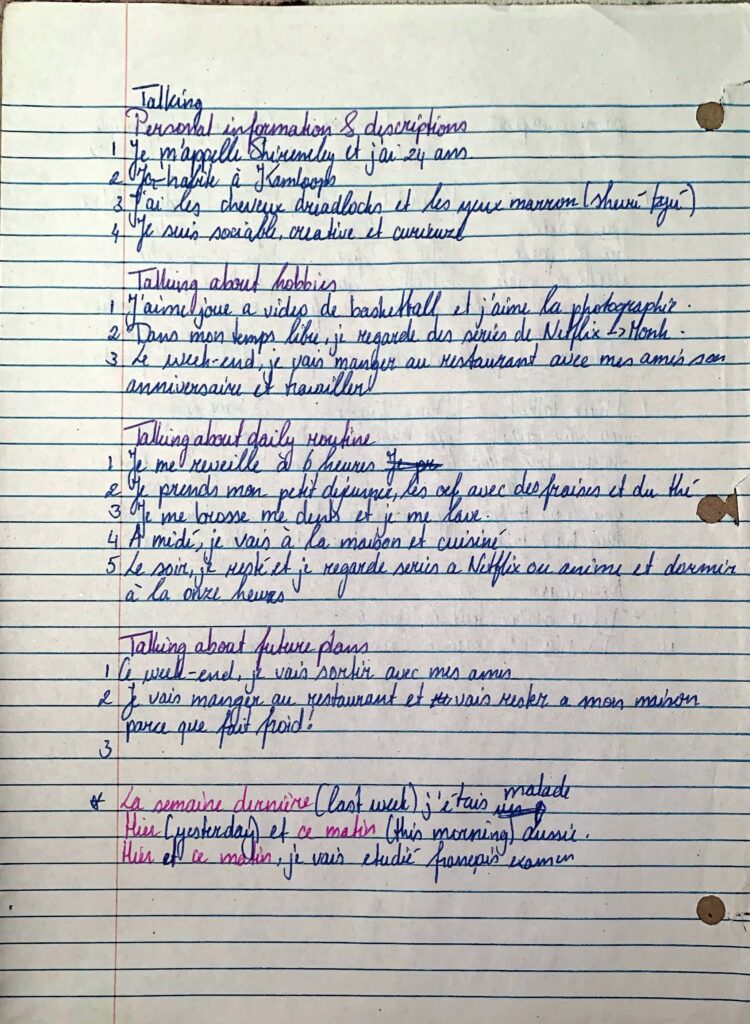 Talking
Personal information & descriptions
1 Je m'appelle Shireneley et j'ai 24 ans.
2 J'habite à Kamloops
3 J'ai les cheveux dreadlocks et les yeux marron (shuvú /zyú)
4 Je suis sociable, creative et curieure
Talking about hobbies
1 J'aime joue a video de basketball et j'aime la photographie.
2 Dans mon temps libre, je regarde des séries de Netflix → Monk.
3 Le week-end, je vais manger au restaurant avec mes amis son
anniversaire et travailler
Talking about daily routine
1 Je me reveille à 6 heures
2 Je prends mon petit dejunee, les oef avec des fraises et du thé
3 Je me brosse me dents et je me lave.
4 A midé, je vais à la maison et cuisiné
5 Le soir, je resté et je regarde series a Netflix ou anime et dormir
à la onze heures
Talking about future plans
1 Ce week-end, je vais sortir avec mes amis
2 Je vais manger au restaurant et vais rester a mon maison
parce que fait froid!
3
* La semaine dernière (last week) j'étais malade
Hier (yesterday) et ce matin (this morning) aussi.
Hier et ce matin, je vais etudié français examen